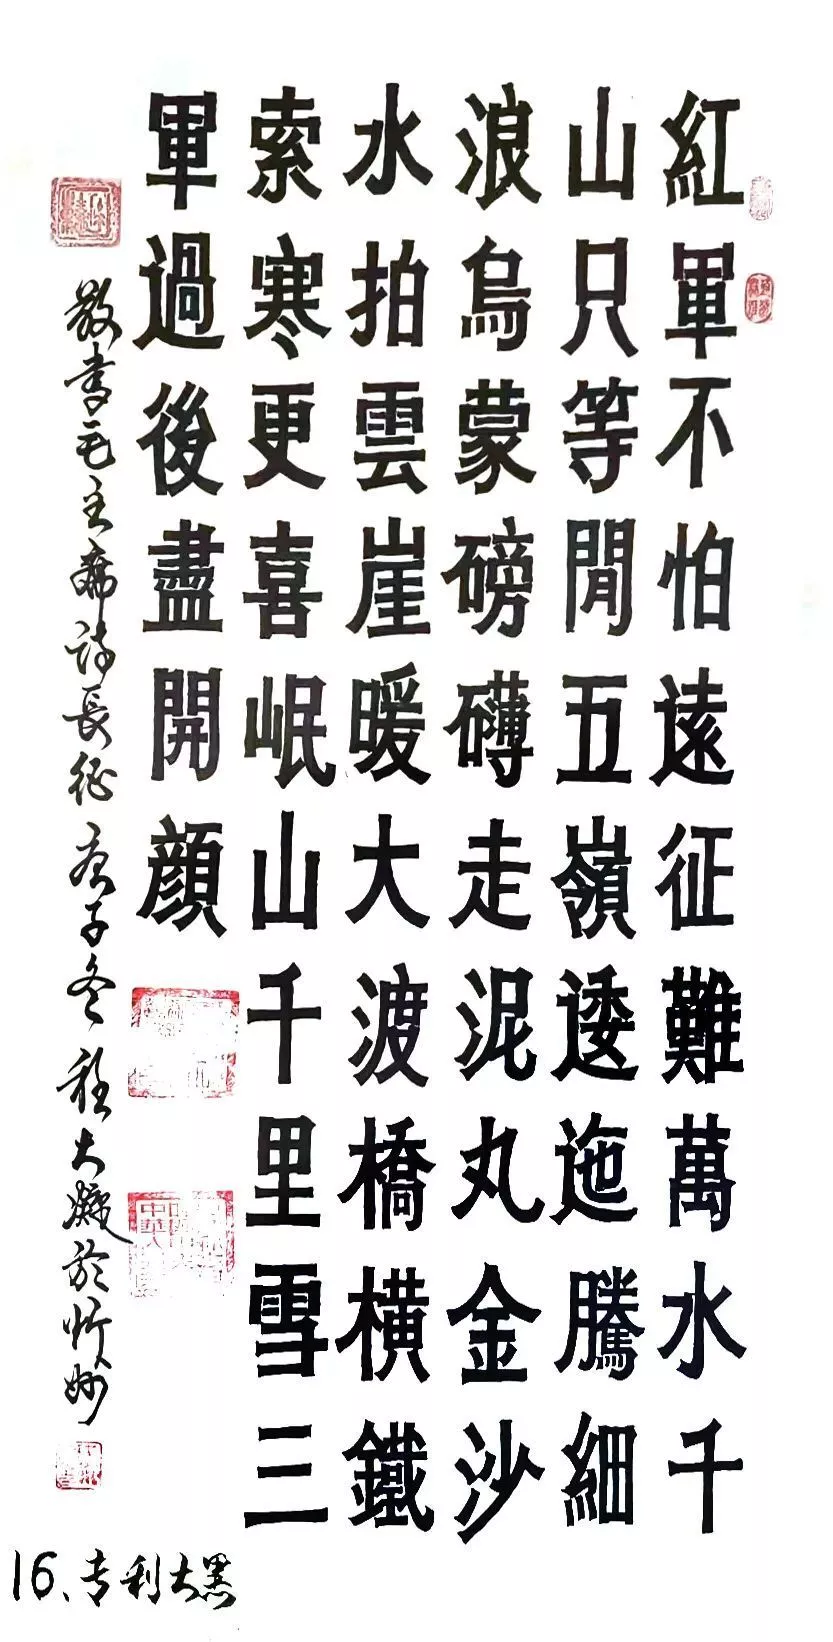 紅軍不怕遠征難萬水千
山只等閒五嶺逶迤騰細
浪烏蒙磅礴走泥丸金沙
水拍雲崖暖大渡橋橫鐵
索寒更喜岷山千里雪三
軍過後盡開顔
敬書毛主席詩長征庚子冬程大於
16、专利大黑